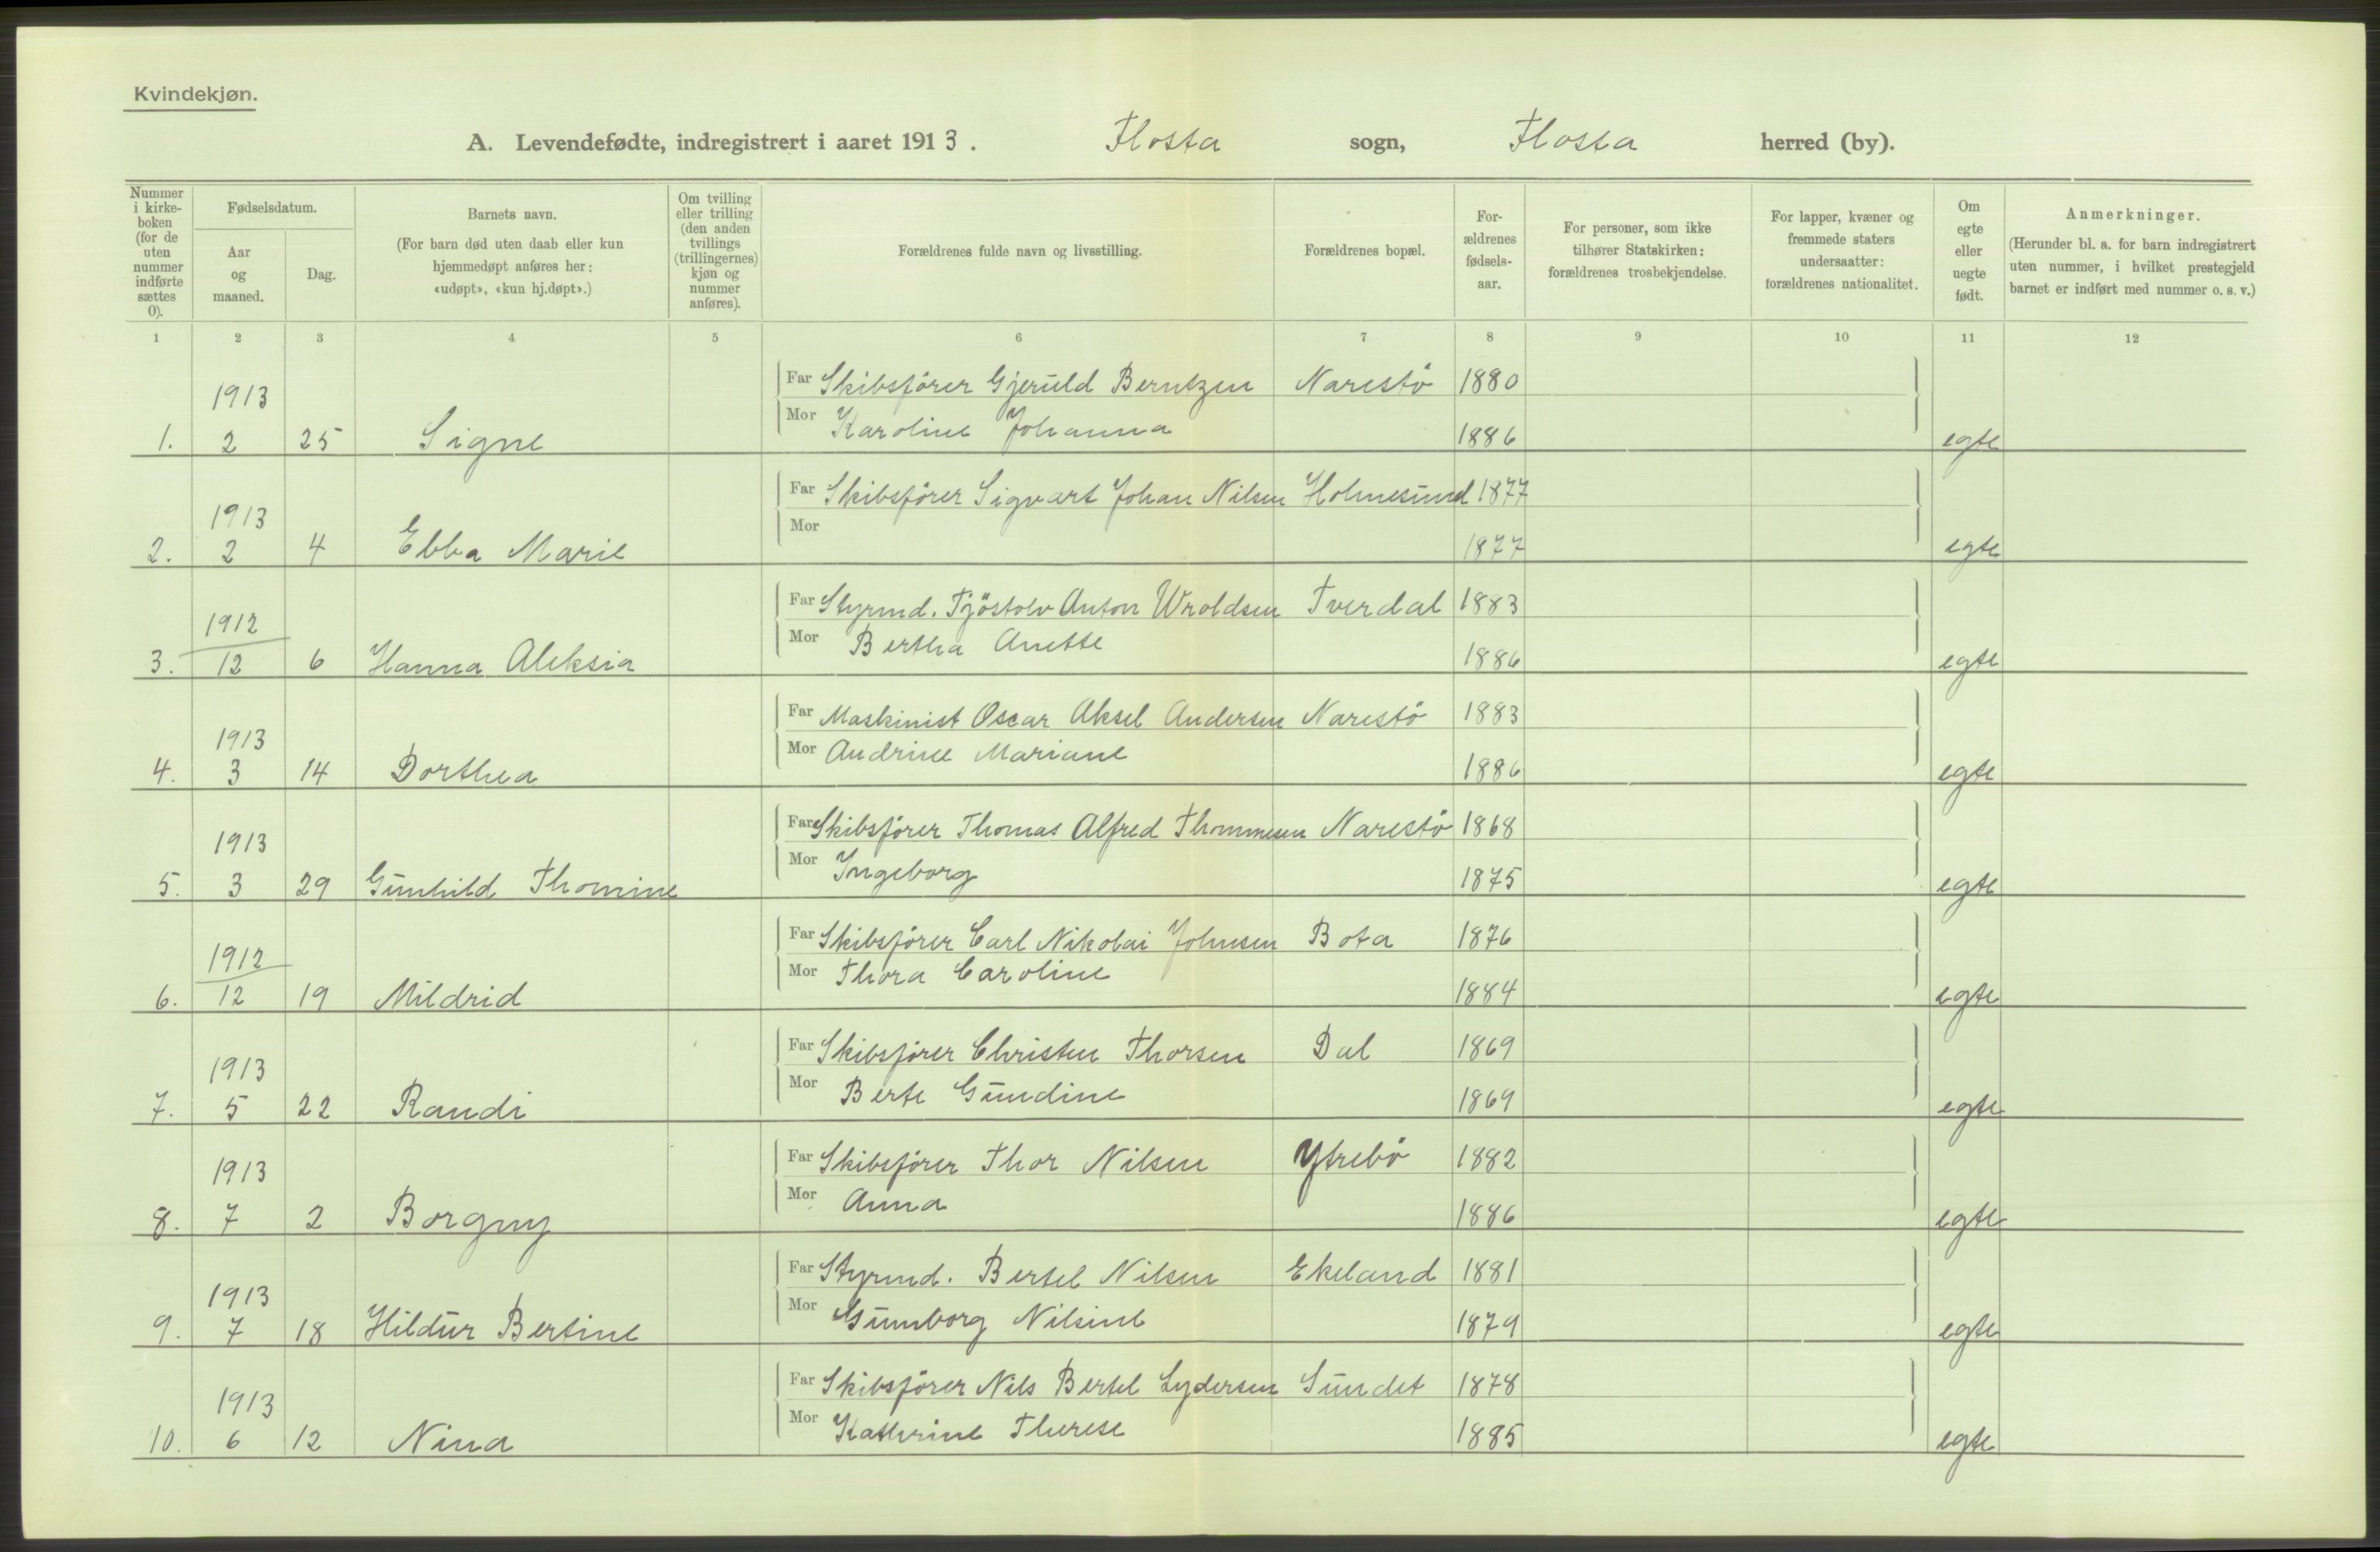 Kvindekjøn.
A. Levendefødte, indregistrert i aaret 1913. Flosta sogn, Flosta herred (by).
Nummer i kirke-boken (for de uten nummer indførte sættes 0).
Fødselsdatum.
Aar og maaned.
Dag.
Barnets navn.
(For barn død uten daab eller kun hjemmedøpt anføres her: «udøpt», «kun hj.døpt».)
Om tvilling eller trilling (den anden tvillings (trillingernes) kjøn og nummer anføres).
Forældrenes fulde navn og livsstilling.
Forældrenes bopæl.
For-ældrenes fødsels-aar.
For personer, som ikke tilhører Statskirken: forældrenes trosbekjendelse.
For lapper, kvæner og fremmede staters undersaatter: forældrenes nationalitet.
Om egte eller uegte født.
Anmerkninger.
(Herunder bl. a. for barn indregistrert uten nummer, i hvilket prestegjeld barnet er indført med nummer o. s. v.)
1 2 3 4 5 6 7 8 9 10 11 12
1913 Far Skibsfører Gjeruld Berntzen Narestö 1880
1. 2 25 Signe Mor Karoline Johanna 1886 egte
1913 Far Skibsfører Sigvart Johan Nilsen Holmesund 1877
2. 2 4 Ebba Marie Mor 1877 egte
1912 Far Styrmd. Tjöstolv Anton Wroldsen Tverdal 1883
3. 12 6 Hanna Aleksia Mor Bertha Anette 1886 egte
1913 Far Maskinist Oscar Aksel Andersen Narestö 1883
4. 3 14 Dorthea Mor Andrine Mariane 1886 egte
1913 Far Skibsfører Thomas Alfred Thommesen Narestö 1868
5. 3 29 Gunhild Thomine Mor Ingeborg 1875 egte
1912 Far Skibsfører Carl Nikolai Johnsen Bota 1876
6. 12 19 Mildrid Mor Thora Caroline 1884 egte
1913 Far Skibsfører Christen Thorsen Dal 1869
7. 5 22 Randi Mor Berte Gundine 1869 egte
1913 Far Skibsfører Thor Nilsen Ytrebö 1882
8. 7 2 Borgny Mor Anna 1886 egte
1913 Far Styrmd. Bertel Nilsen Ekeland 1881
9. 7 18 Hildur Bertine Mor Gunborg Nilsine 1879 egte
1913 Far Skibsfører Nils Bertel Lydersen Sundet 1878
10. 6 12 Nina Mor Kathrine Therese 1885 egte